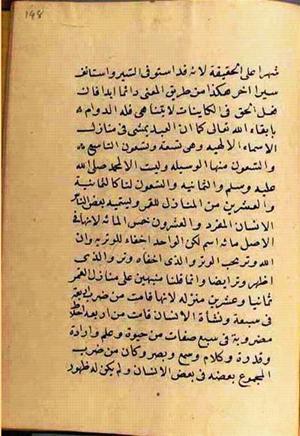 ١٩٨
شهرا على الحقيقة لانه قد استوفى السير واستانف
سيرا اخر هكذا من طريق المعنى دائما ابدا فان
فضل الحق فى الكاينات لا يتناهى فله الدوام
بابقاء الله تعالى كما ان العبد يمشى فى منازل
الاسماء الالهيه وهى تسعة وتسعون التاسع
والتسعون منها الوسيله وليست الا لمحمد صلى الله
عليه وسلم والثمانيه والتسعون لنا كالثمانية
والعشرين من المنازل للقمر ويسميه بعض الناس
الانسان المفرد والعشرون خمس المائة لانها فى
الاصل مائة اسم لكن الواحد اخفاه للوتريه وان
الله وتر يحب الوتر والذى اخفاه وتر والذى
اظهر وتر ايضا وانما قلنا منبهين على منازل القمر
ثمانيا وعشرين منزله لانها قامت من ضرب اربعة
فى سبعة ونشاة الانسان قامت من اربعة اخلاط
مضروبة فى سبع صفات من حيوة وعلم وارادة
وقدرة وكلام وسمع وبصر وكان من ضرب
المجموع بعضه فى بعض الانسان ولم يكن له ظهور